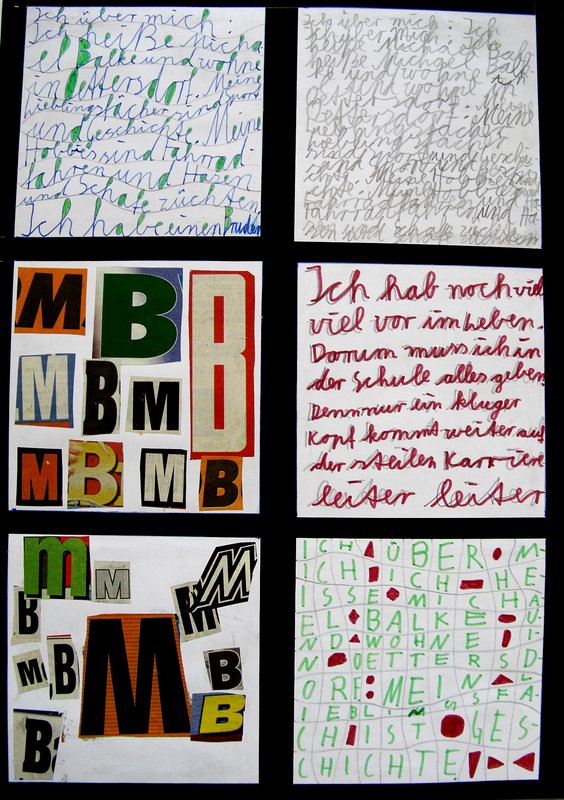 Ich über mich: 
Ich heiße Micha-
el Balke und wohne
in Oettersdorf. Meine
Lieblingsfächer sind Sport
und Geschichte. Meine
Hobbies sind Fahrrad-
fahren und Hasen
und Schafe züchten
Ich habe einen Bruder
Ich über mich: Ich
heiße Michael Balk-
e und wohne in
Oettersdorf. Meine
Lieblingsfächer
sind Sport und Geschi-
chte. Meine Hobbies sind
Fahrradfahren und Ha-
sen und Schafe züchten
M B B
M B M
M B M B
Ich hab noch viel
viel vor im Leben.
Darum muss ich in
der Schule alles geben
Denn nur ein kluger
Kopf kommt weiter auf
der steilen Karriere
leiter leiter
m M M
B M
M B M B
B B
ICH ÜBER M-
ICH ICH HE
ISSE MICHA
EL BALKE U
ND WOHNE I
N OETTERSD
ORF MEINS
IEBLINSFA
CH IST GES-
CHICHTE